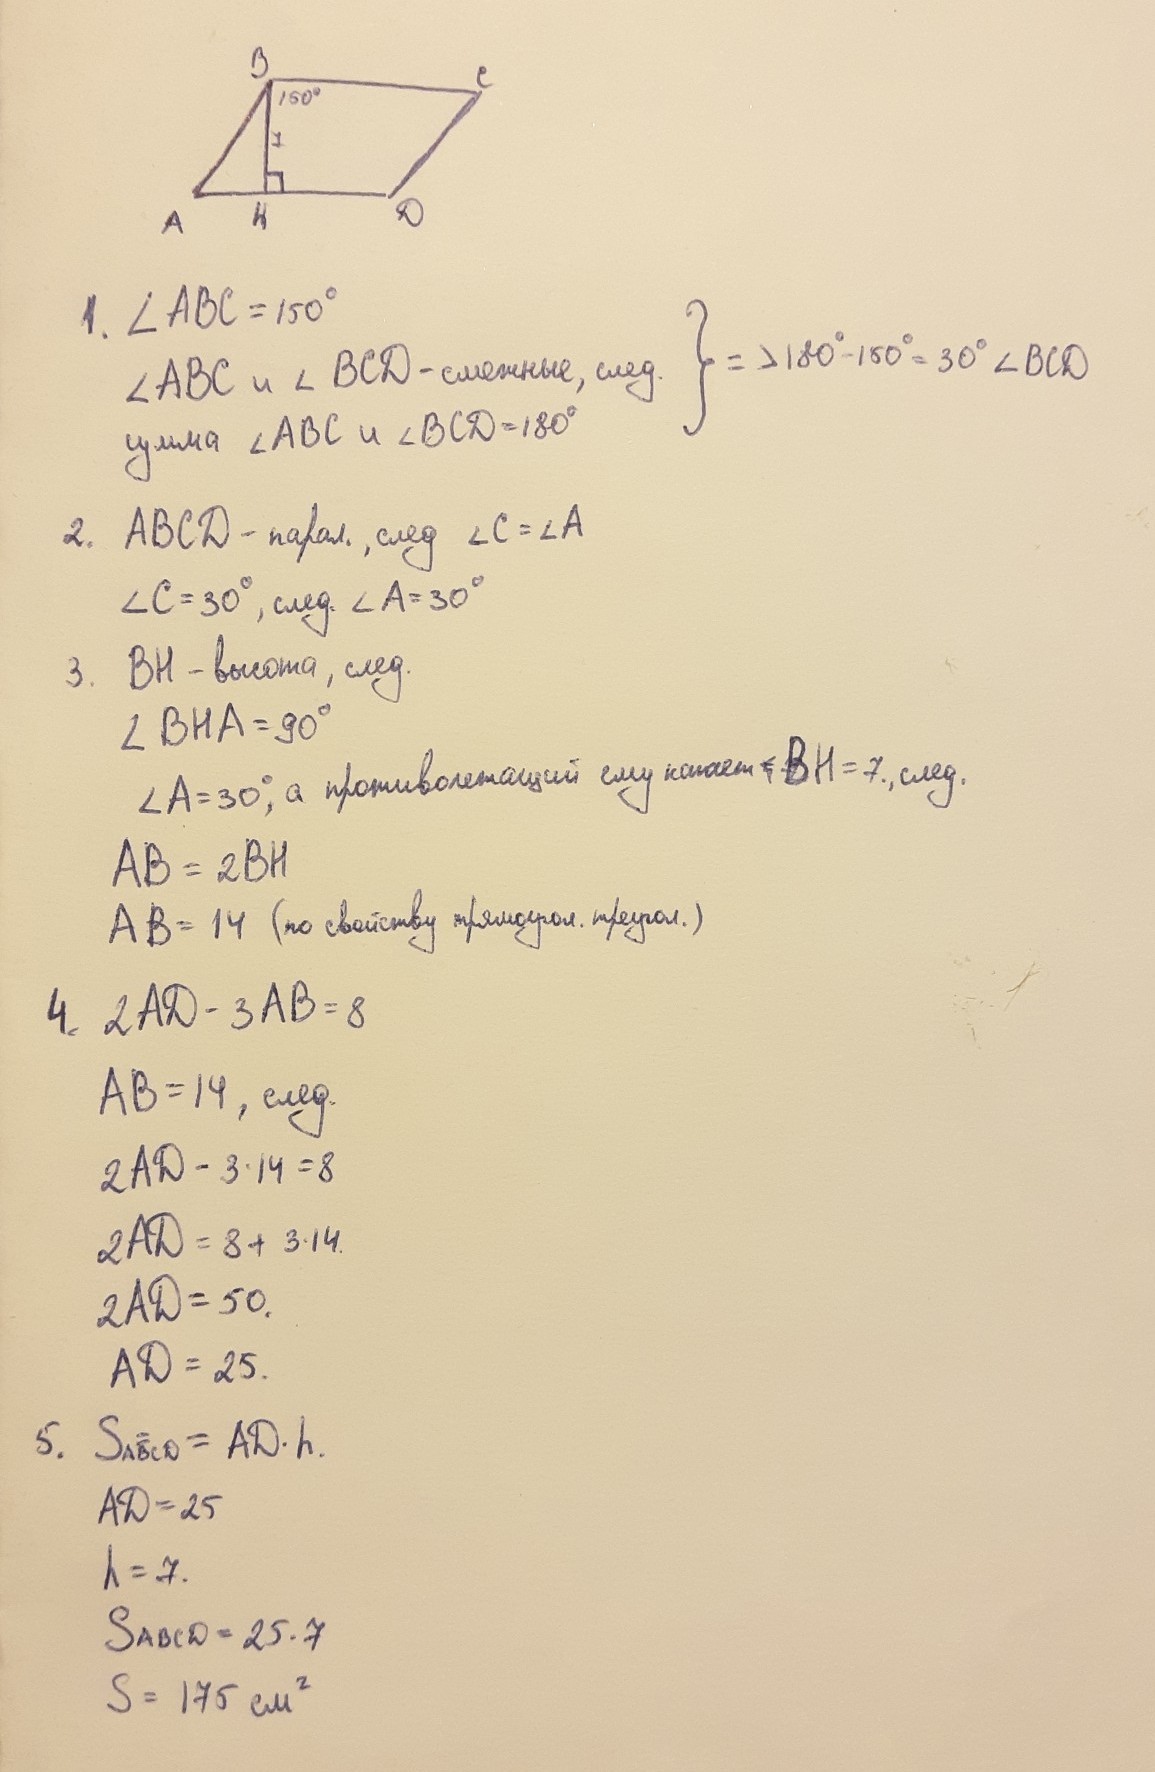 B
C
150°
7
A
H
D
1. ∠ABC = 150°
∠ABC и ∠BCD - смежные, след.
сумма ∠ABC и ∠BCD = 180°
} => 180° - 150° = 30° ∠BCD
2. ABCD - парал., след ∠C = ∠A
∠C = 30°, след. ∠A = 30°
3. BH - высота, след.
∠BHA = 90°
∠A = 30°, а противолежащий ему катет BH = 7, след.
AB = 2BH
AB = 14 (по свойству прямоугол. треугол.)
4. 2AD - 3AB = 8
AB = 14, след.
2AD - 3·14 = 8
2AD = 8 + 3·14.
2AD = 50.
AD = 25.
5. SABCD = AD·h.
AD = 25
h = 7.
SABCD = 25·7
S = 175 см²